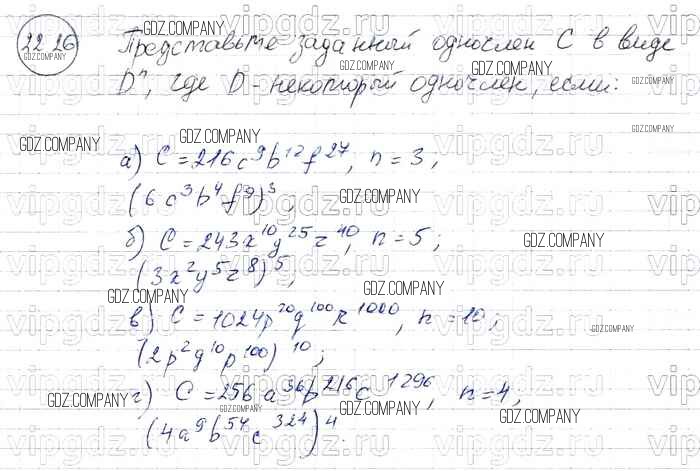 22.26 Представьте заданный одночлен C в виде
Dⁿ, где D - некоторый одночлен, если:
а) C = 216c⁹b¹²f²⁷, n = 3;
(6c³b⁴f⁹)³
б) C = 243x¹⁰y²⁵z⁴⁰, n = 5;
(3x²y⁵z⁸)⁵;
в) C = 1024p²⁰q¹⁰⁰r¹⁰⁰⁰, n = 10;
(2p²q¹⁰p¹⁰⁰)¹⁰;
г) C = 256a³⁶b²¹⁶c¹²⁹⁶, n = 4,
(4a⁹b⁵⁴c³²⁴)⁴.
GDZ.COMPANY
vipgdz.ru